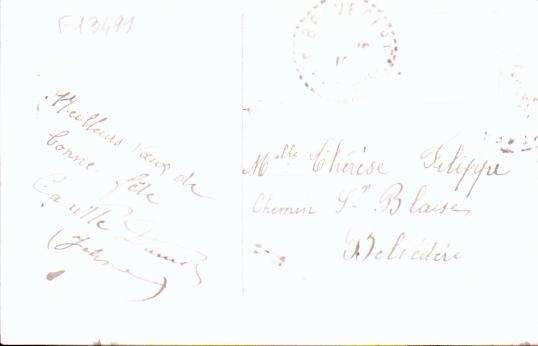 F13491
Meilleurs vœux de
bonne fête
Camille
Melle Thérèse Filippe
Chemin St Blaise
Belvédère